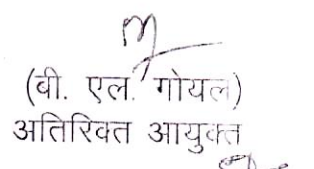 (बी. एल. गोयल)
अतिरिक्त आयुक्त